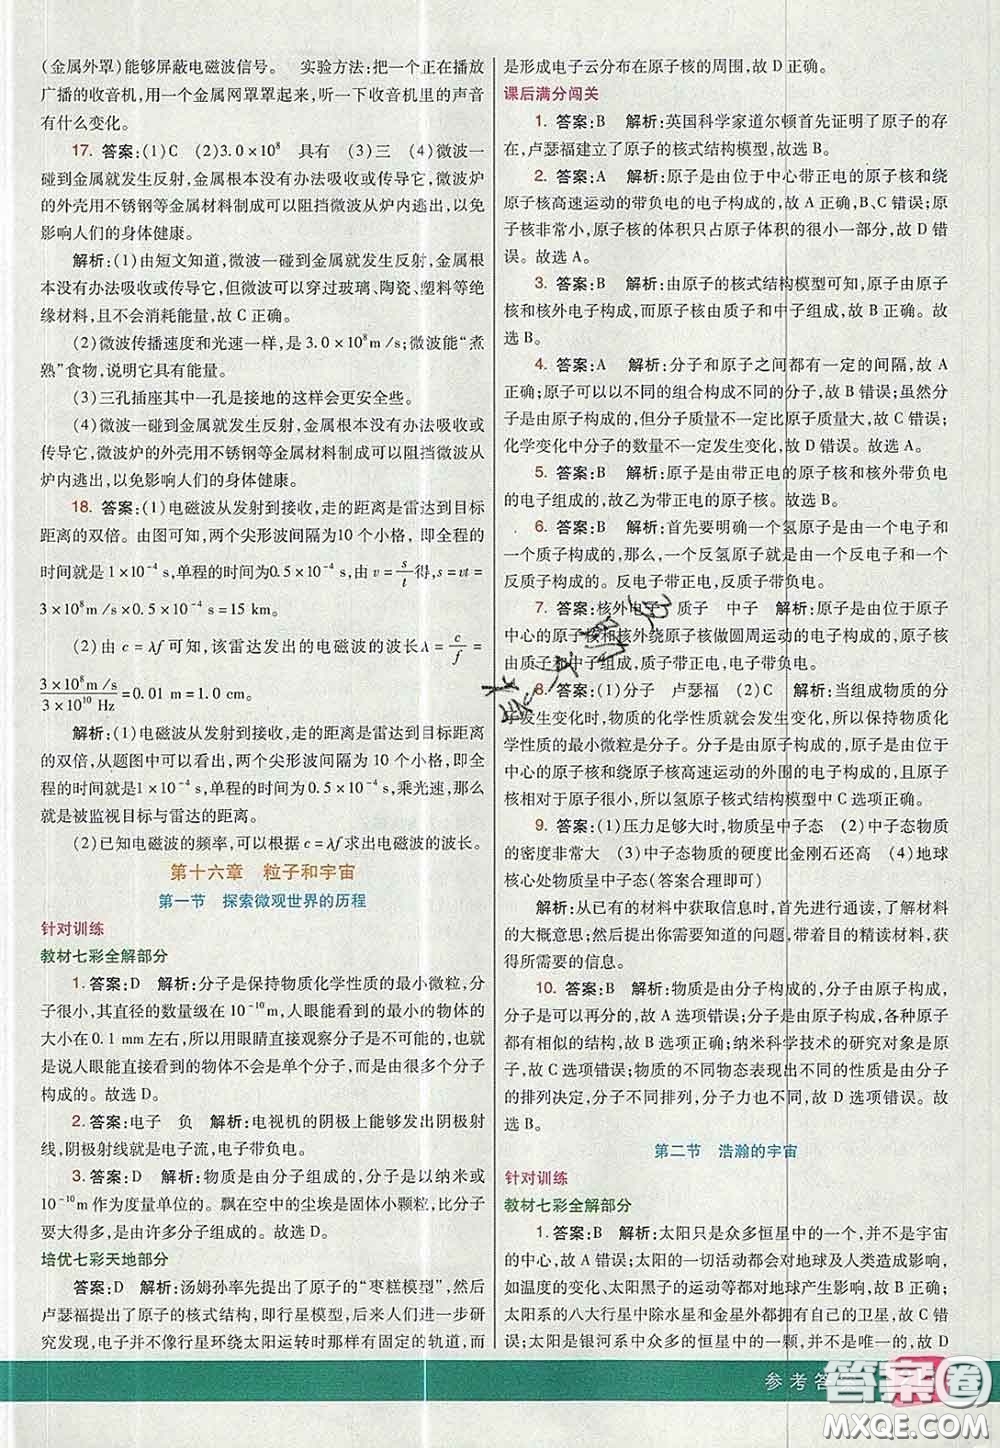 (金属外罩)能够屏蔽电磁波信号。　实验方法:把一个正在播放
广播的收音机,用一个金属网罩罩起来,听一下收音机里的声音
有什么变化。
17. 答案:(1)C　(2)3.0×10⁸　具有　(3)三　(4)微波一
碰到金属就发生反射,金属根本没有办法吸收或传导它,微波炉
的外壳用不锈钢等金属材料制成可以阻挡微波从炉内逃出,以免
影响人们的身体健康。
解析:(1)由短文知道,微波一碰到金属就发生反射,金属
根本没有办法吸收或传导它,但微波可以穿过玻璃、陶瓷、塑料等绝
缘材料,且不会消耗能量,故 C 正确。
(2)微波传播速度和光速一样,是 3.0×10⁸ m/s;微波能“煮
熟”食物,说明它具有能量。
(3)三孔插座其中一孔是接地的这样会更安全些。
(4)微波一碰到金属就发生反射,金属根本没有办法吸收或
传导它,微波炉的外壳用不锈钢等金属材料制成可以阻挡微波从
炉内逃出,以免影响人们的身体健康。
18. 答案:(1)电磁波从发射到接收,走的距离是雷达到目标
距离的双倍。由图可知,两个尖形波间隔为10 个小格,即全程的
时间就是 1×10⁻⁴ s,单程的时间为0.5×10⁻⁴ s,由 v=s/t 得,s=vt=
3×10⁸m/s×0.5×10⁻⁴ s=15 km。
(2)由 c=λf 可知,该雷达发出的电磁波的波长 λ=c/f=
3×10⁸ m/s / 3×10¹⁰ Hz=0.01 m=1.0 cm。
解析:(1)电磁波从发射到接收,走的距离是雷达到目标距离
的双倍,从题图中可以看出,两个尖形波间隔为 10 个小格,即全
程的时间就是 1×10⁻⁴ s,单程的时间为0.5×10⁻⁴ s,乘光速,最后
就是被监视目标与雷达的距离。
(2)已知电磁波的频率,可以根据 c=λf 求出电磁波的波长。
第十六章　粒子和宇宙
第一节　探索微观世界的历程
针对训练
教材七彩全解部分
1. 答案:D　解析:分子是保持物质化学性质的最小微粒,分
子很小,其直径的数量级在 10⁻¹⁰m,人眼能看到的最小的物体的
大小在 0.1 mm 左右,所以用眼睛直接观察分子是不可能的,也
就是说人眼能直接看到的物体不会是单个分子,而是由许多分子
构成的。故选 D。
2. 答案:电子　负　解析:电视机的阴极上能够发出阴极射
线,阴极射线就是电子流,电子带负电。
3. 答案:D　解析:物质是由分子组成的,分子是以纳米或
10⁻¹⁰ m 作为度量单位的。飘在空中的尘埃是固体小颗粒,体积
要大得多,是由许多分子组成的。故选 D。
培优七彩天地部分
答案:D　解析:汤姆孙率先提出了原子的“枣糕模型”,然后
卢瑟福提出了原子的核式结构,即行星模型,后来人们进一步研
究发现,电子并不像行星环绕太阳运转时那样有固定的轨道,而
是形成电子云分布在原子核的周围,故 D 正确。
课后满分闯关
1. 答案:B　解析:英国科学家道尔顿首先证明了原子的存
在,卢瑟福建立了原子的核式结构模型,故选 B。
2. 答案:A　解析:原子是由位于中心带正电的原子核和绕
原子核高速运动的带负电的电子构成的,故 A 正确,B、C 错误;原
子核非常小,原子核的体积只占原子体积的很小一部分,故 D 错
误。故选 A。
3. 答案:B　解析:由原子的核式结构模型可知,原子由原子
核和核外电子构成,而原子核由质子和中子组成,故 B 正确。故
选 B。
4. 答案:A　解析:分子和原子之间都有一定的间隔,故 A
正确;原子可以以不同的组合构成不同的分子,故 B 错误;虽然分
子是由原子构成的,但分子质量不一定比原子质量大,故 C 错误;
化学变化中分子的数量不一定发生变化,故 D 错误。故选 A。
5. 答案:B　解析:原子是由带正电的原子核和核外带负电
的电子组成的,故乙为带正电的原子核。故选 B。
6. 答案:B　解析:首先要明确一个氢原子是由一个电子和
一个质子构成的,那么,一个反氢原子就是由一个反电子和一个
反质子构成的。反电子带正电,反质子带负电。
7. 答案:核外电子　质子　中子　解析:原子是由位于原子
中心的原子核和核外绕原子核做圆周运动的电子构成的,原子核
由质子和中子组成,质子带正电,中子不带电。
8. 答案:(1)分子　卢瑟福　(2)C　解析:当组成物质的分
子发生变化时,物质的化学性质就会发生变化,所以保持物质化
学性质的最小微粒是分子。分子是由原子构成的,原子是由中心
的原子核和绕原子核高速运动的外围的电子构成的,且原子核
相对于原子很小,所以氢原子核式结构模型中 C 选项正确。
9. 答案:(1)压力足够大时,物质呈中子态　(2)中子态物质
的密度非常大　(3)中子态物质的硬度比金刚石还高　(4)地球
核心处物质呈中子态(答案合理即可)
解析:从已有的材料中获取信息时,首先进行通读,了解材料
的大概意思;然后提出你需要知道的问题,带着目的精读材料,获
得所需要的信息。
10. 答案:B　解析:物质是由分子构成,分子由原子构成,分
子是可以再分的,故 A 选项错误;分子由原子构成,各种原子都
有相似的结构,故 B 选项正确;纳米科学技术的研究对象是原子、
分子,不需要研究质子的排列,故 C 选项错误;物质形态是由分子
的排列决定,分子本身不会发生变化,故 D 选项错误。
故选 B。
第二节　浩瀚的宇宙
针对训练
教材七彩全解部分
1. 答案:B　解析:太阳只是众多恒星中的一个,并不是宇宙
的中心,故 A 错误;太阳的一切活动都会对地球及人类造成影响,
如温度的变化、太阳黑子的运动等都对地球产生影响,故 B 正确;
太阳系的八大行星中除水星和金星外都拥有自己的卫星,故 C 错
误;太阳是银河系中众多的恒星中的一颗,并不是唯一的,故 D
参考答
答案圈
MXQE.COM